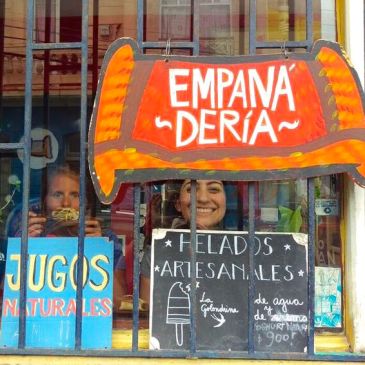 EMPANÁ
~DERÍA~
JUGOS
NATURALES
HELADOS
ARTESANALES
La
Golondrina
de agua
y
YOGHURT
$900!